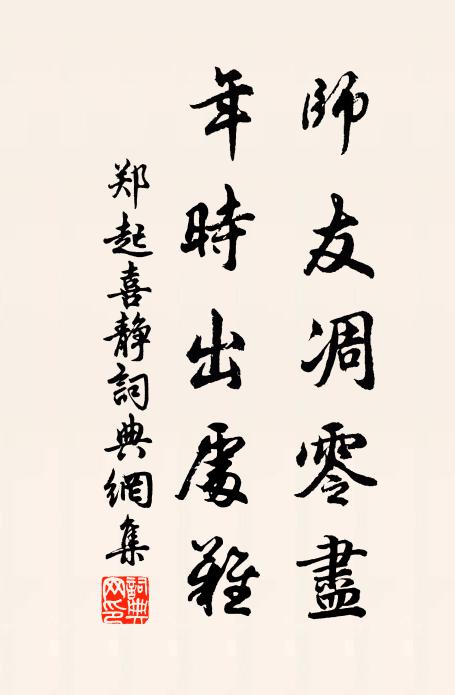 師友凋零盡
年時出處難
郑起喜靜詞典網集
詞典網印